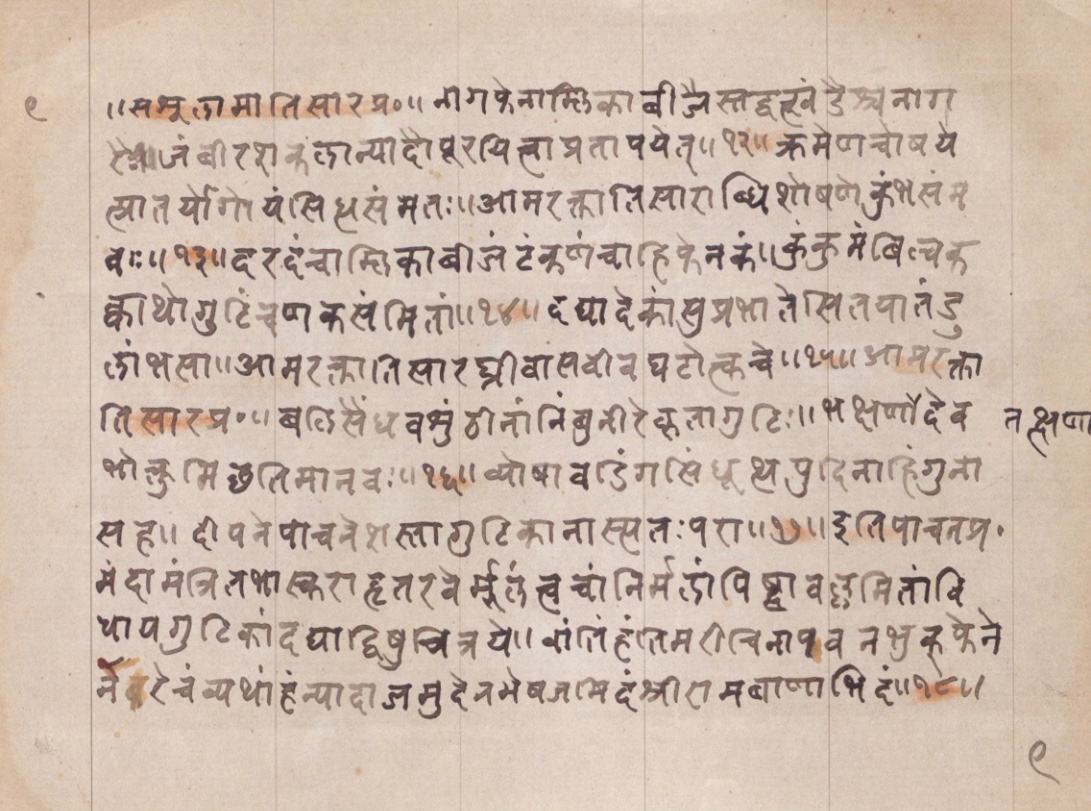 ॥समूलामातिसारप्र०॥ नागफेनाम्लिकाबीजैस्तद्वत्खंडैश्चनाग
जंबीरशकलान्यादौपूरयित्वाप्रतापयेत्॥१२॥क्रमेणचोषये
त्प्रातर्योगोयंसिद्धसंमतः॥आमरक्तातिसाराब्धिशोषणेकुंभसंभ
वः॥१३॥दरदंचाम्लिकाबीजंटंकणंचाहिफेनकं॥कुंकुमंबिल्वक
क्वाथोगुटिंचणकसंमितां॥१४॥दद्यादेकांसुप्रभातेसितयातंडु
लांभसा॥आमरक्तातिसारघ्नीवासवीवघटोत्कचे॥१५॥आमरक्ता
तिसारप्र०॥बलिसैंधवशुंठीनांनिंबुनीरेकृतागुटिः॥भक्षणादेव
तत्क्षणा
भोक्तुमिछतिमानवः॥१६॥व्योषावडिंगसिंधूत्थपुदिनाहिंगुना
सह॥ दीपनेपाचनेशस्तागुटिकानास्त्यतःपरा॥१७॥इतिपाचनप्र०
मंदामंत्रितभास्कराहृतरवेर्मूलंत्वचांनिर्मलांपिष्ट्वावल्लमितांवि
धायगुटिकांदद्याद्विषुचित्रये॥वांतिंहंतिमरीचिनापवनभुक्फेने
नवैरेचंव्यथांहंन्यादाजमुदेनभेषजमिदंश्रीरामबाणाभिदं॥१८॥
९
९